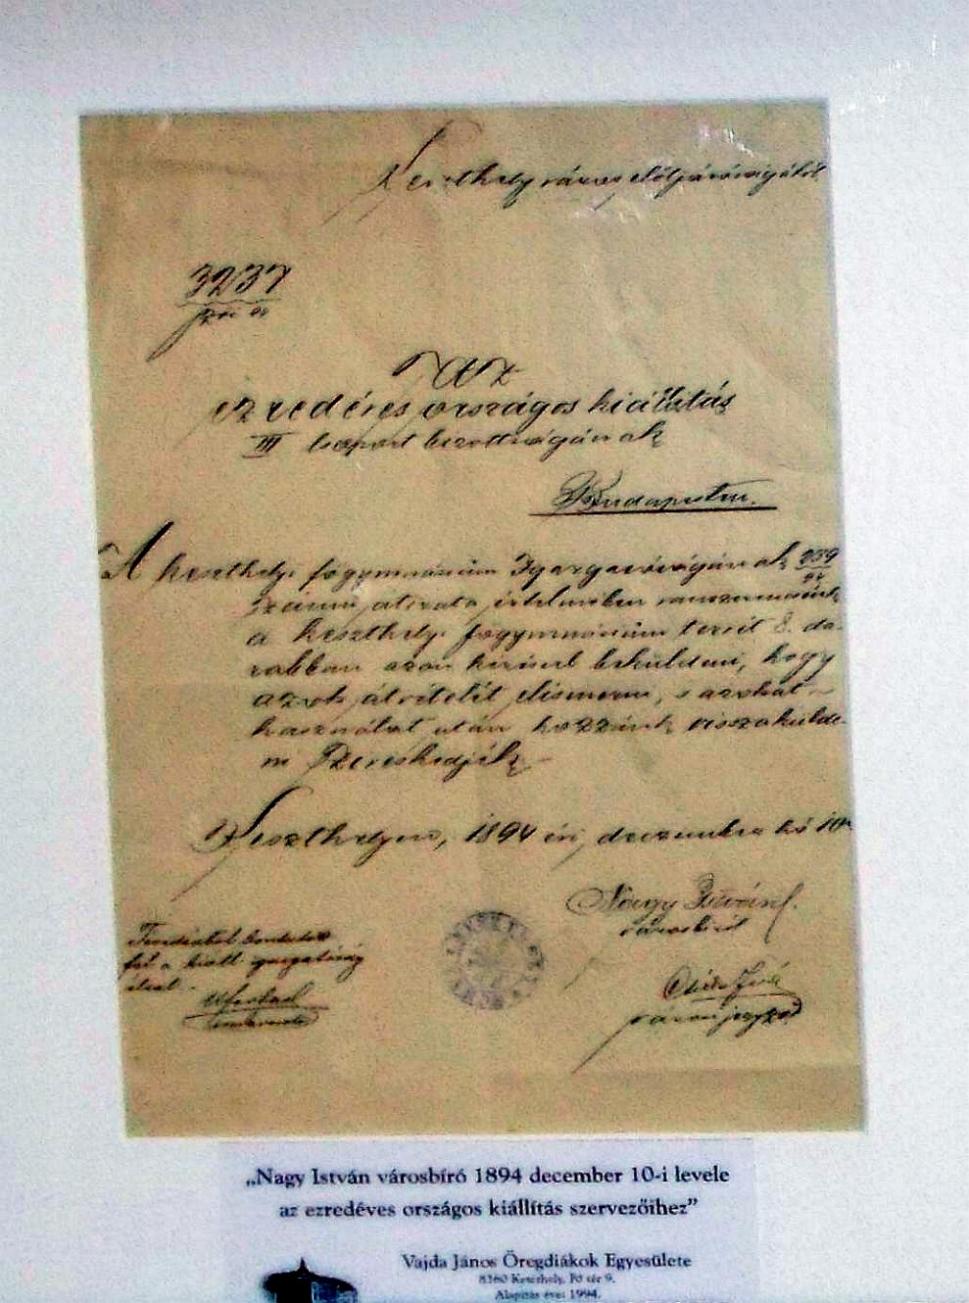 Keszthely város elöljáróságától
3237
Az
ezredéves országos kiállitás
III csoport bizottságának
Budapesten.
A keszthelyi főgymnásium Igazgatóságának 239
számú átirata értelmében van szerencsénk
a keszthelyi főgymnásium tervét 8. da-
rabban azon kéréssel beküldeni, hogy
azok átvételét elismerni, s azokat
használat után hozzánk visszakülde-
ni szíveskedjék
Keszthelyen, 1894 évi deczember hó 10
Nagy István
városbíró
városi jegyző
„Nagy István városbíró 1894 december 10-i levele
az ezredéves országos kiállítás szervezőihez”
Vajda János Öregdiákok Egyesülete
8360 Keszthely, Fő tér 9.
Alapítás éve: 1994.